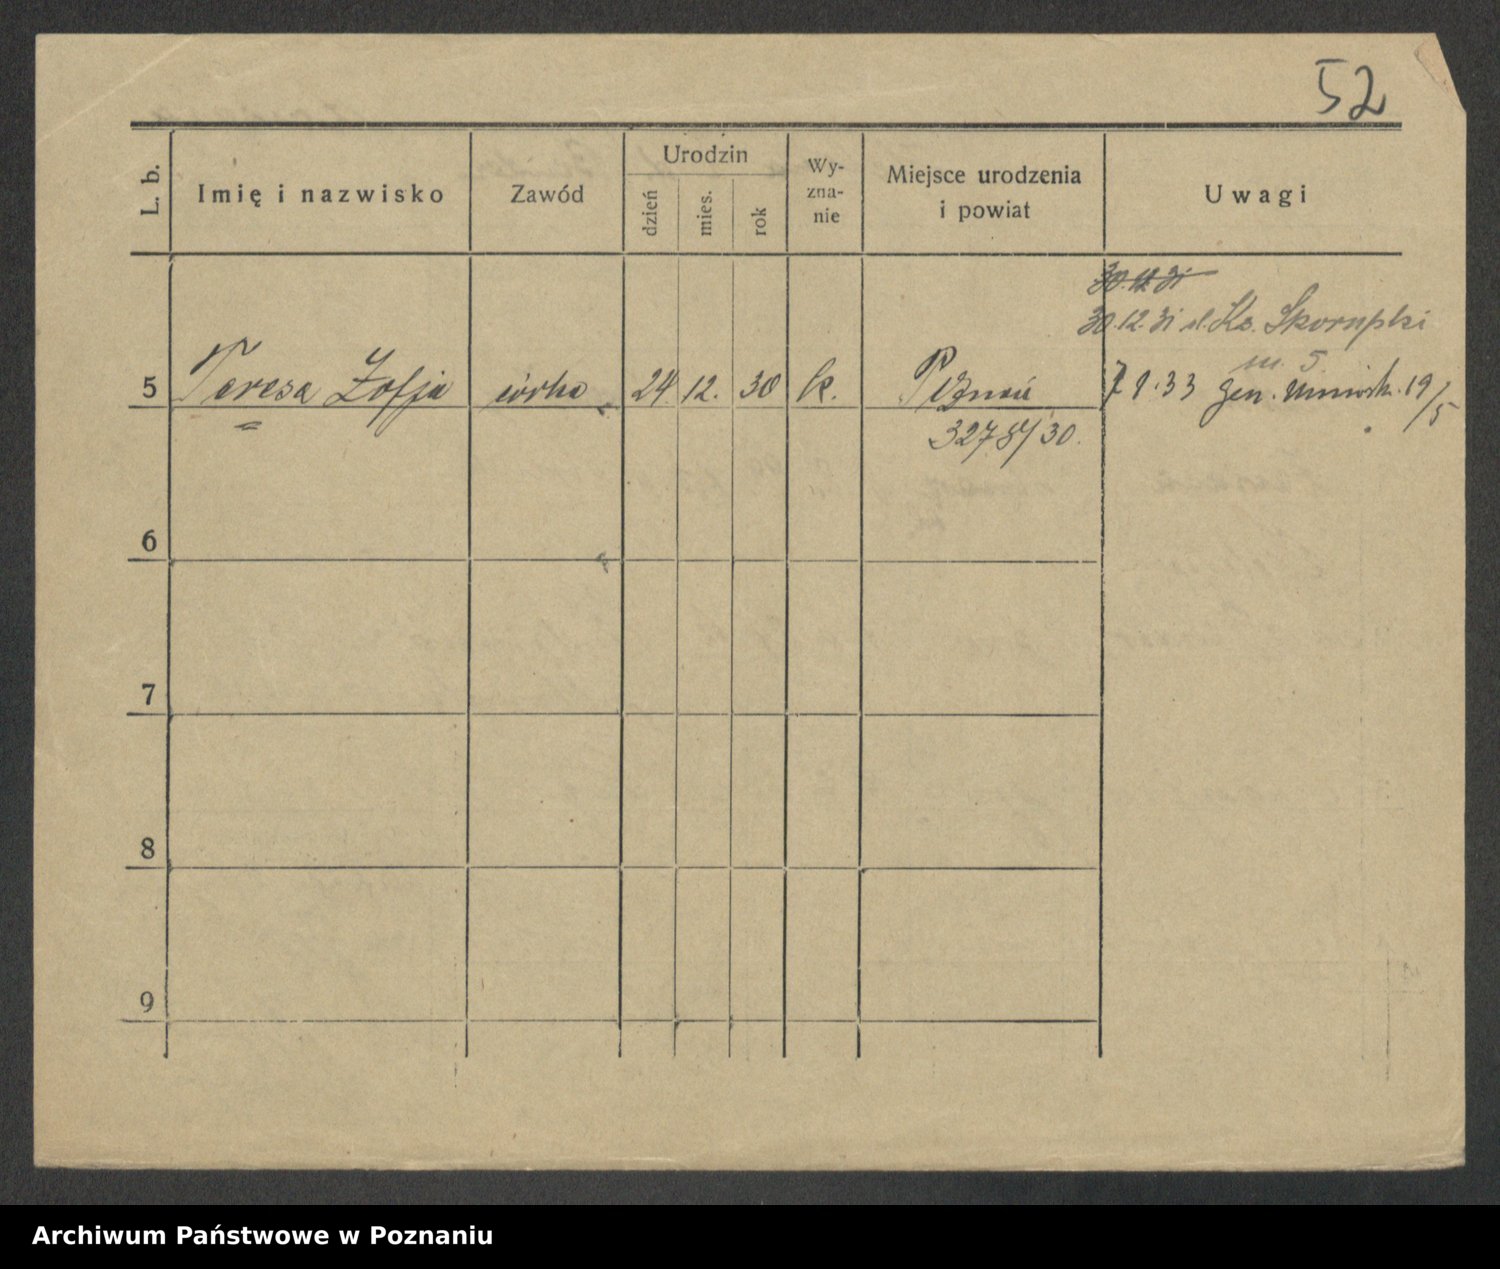 52
L. b.
Imię i nazwisko
Zawód
Urodzin
dzień
mies.
rok
Wy-
zna-
nie
Miejsce urodzenia
i powiat
Uwagi
30.12.31
30.12.31 Ks. Skorupki
m. 5
5 Teresa Zofja córka 24 12. 30 k. Poznań 33 gen. 19/5
3278/30.
6
7
8
9
Archiwum Państwowe w Poznaniu